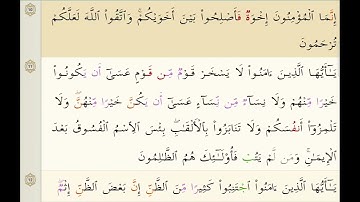 إِنَّمَا الْمُؤْمِنُونَ إِخْوَةٌ فَأَصْلِحُوا۟ بَيْنَ أَخَوَيْكُمْ ۚ وَاتَّقُوا۟ اللَّهَ لَعَلَّكُمْ
تُرْحَمُونَ
يَـٰٓأَيُّهَا الَّذِينَ ءَامَنُوا۟ لَا يَسْخَرْ قَوْمٌ مِّن قَوْمٍ عَسَىٰٓ أَن يَكُونُوا۟
خَيْرًا مِّنْهُمْ وَلَا نِسَآءٌ مِّن نِّسَآءٍ عَسَىٰٓ أَن يَكُنَّ خَيْرًا مِّنْهُنَّ ۖ وَلَا
تَلْمِزُوٓا۟ أَنفُسَكُمْ وَلَا تَنَابَزُوا۟ بِالْأَلْقَـٰبِ ۖ بِئْسَ الِاسْمُ الْفُسُوقُ بَعْدَ
الْإِيمَـٰنِ ۚ وَمَن لَّمْ يَتُبْ فَأُو۟لَـٰٓئِكَ هُمُ الظَّـٰلِمُونَ
يَـٰٓأَيُّهَا الَّذِينَ ءَامَنُوا۟ اجْتَنِبُوا۟ كَثِيرًا مِّنَ الظَّنِّ إِنَّ بَعْضَ الظَّنِّ إِثْمٌ ۖ